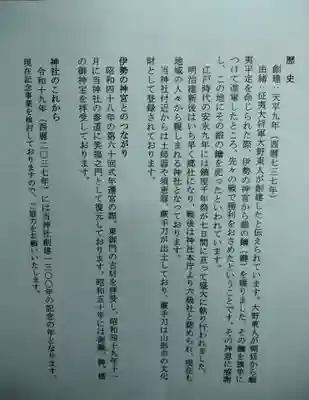 歴史
創建：天平九年（西暦七三七年）
由緒：征夷大将軍大野東人が創建したと伝えられています。大野東人が朝廷から蝦
夷平定を命じられた際、伊勢の神宮から銀の幣（鏡）を賜りました。その
つけて進軍したところ、先々の戦で勝利をおさめたということです。その神恩に感謝
し、この地にその銀の を祀ったといわれています。
江戸時代の安永九年には鎮座千年祭が七日間に亘って盛大に執り行われました。
明治維新後はいち早く郷社になり、戦後は神社本庁より六級社と認められ、現在も
地域の人々から親しまれる神社となっております。
当神社付近からは土師器や須恵器、蕨手刀が出土しており、蕨手刀は山形市の文化
財として登録されております。
伊勢の神宮とのつながり
昭和四十八年の第六十回式年遷宮の際、東御門の古材を拝受し、昭和四十九年十一
月に当神社の参道に 門として復元しております。昭和五十年には御
の御神宝を拝受しております。
神社のこれから
令和十九年（西暦二〇三七年）には当神社創建一三〇〇年の記念の年となります。
現在記念事業を検討しておりますので、ご協力をお願いいたします。